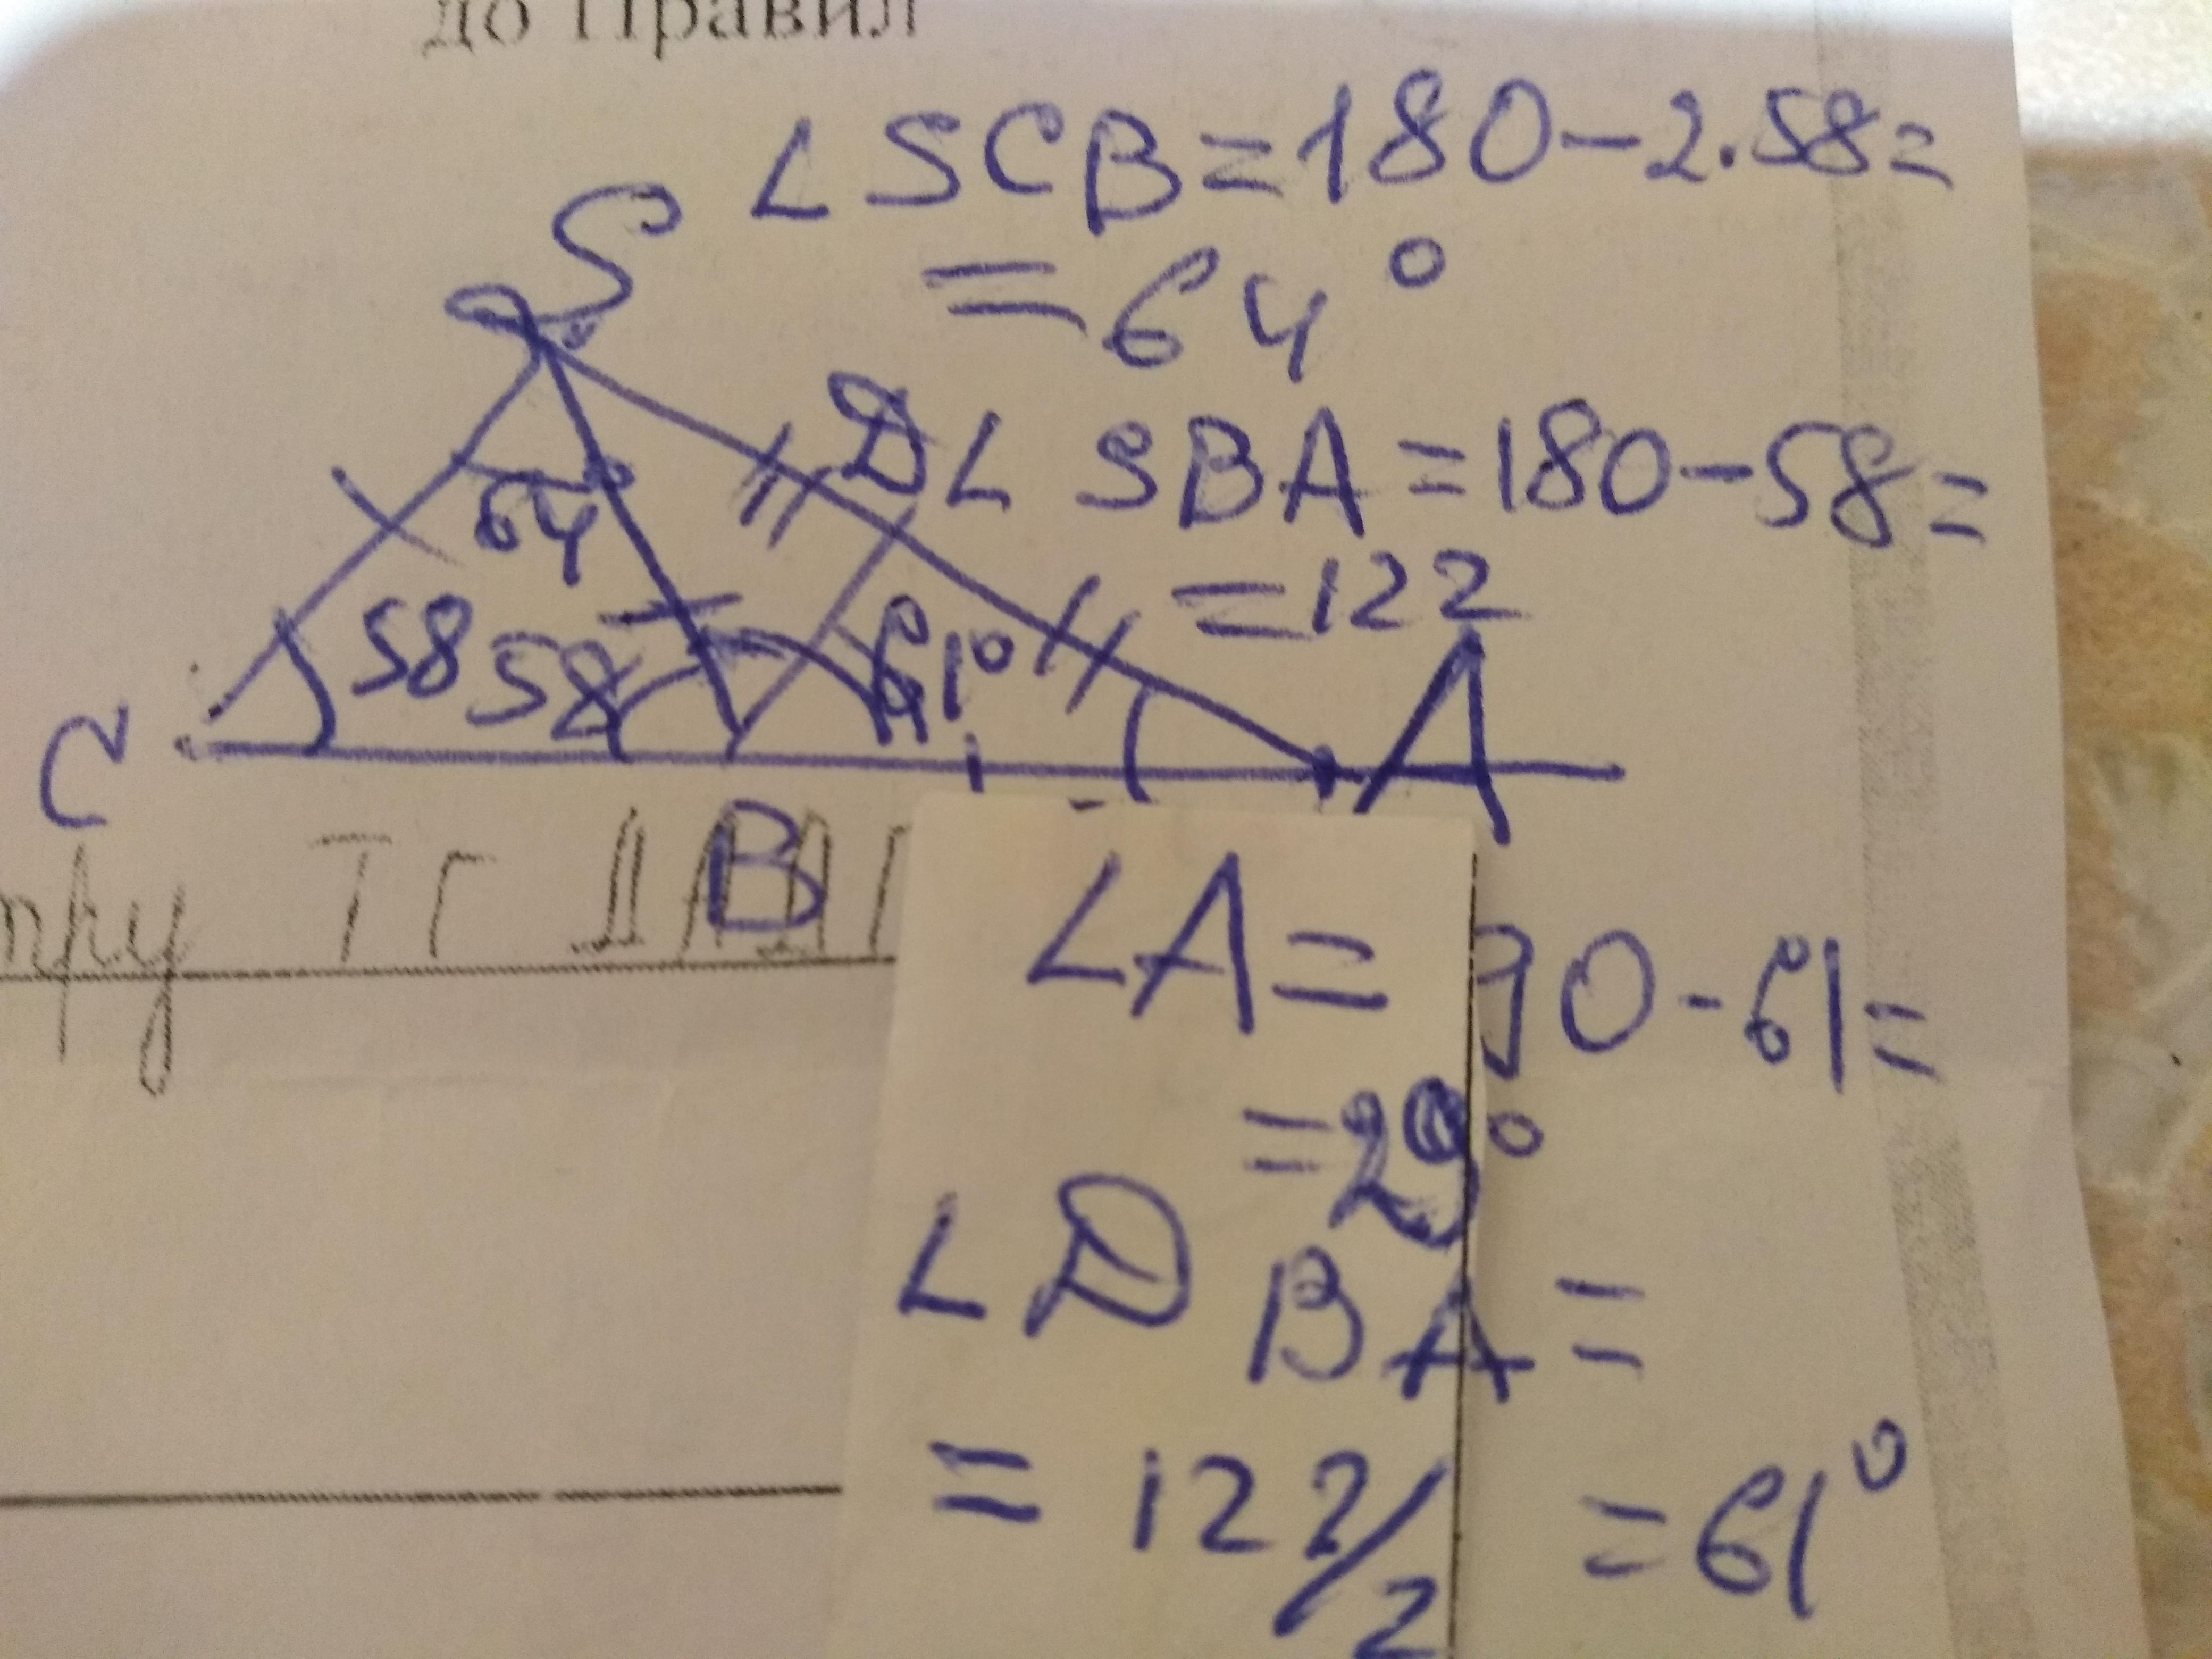 до Правил
∠SCB=180-2·58=
=64°
S
D ∠ SBA=180-58=
64
=122
58 58 61°
A
C
B
ТГ
∠A= 90-61=
=29°
∠DBA=
=122/2 =61°